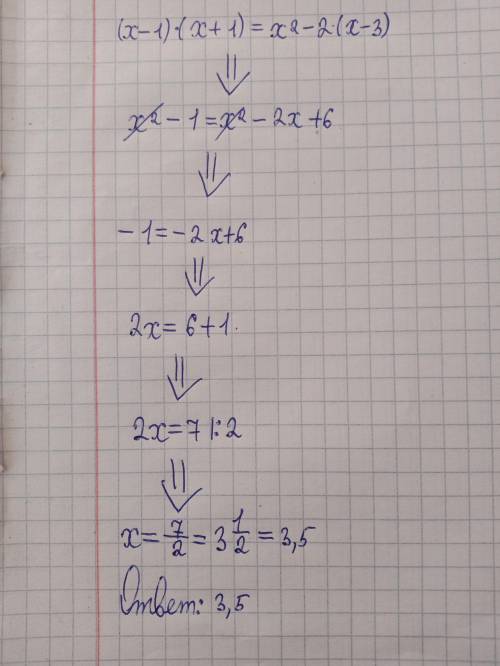 (x-1)·(x+1)=x²-2·(x-3)
⇓
x²-1=x²-2x+6
⇓
-1=-2x+6
⇓
2x=6+1
⇓
2x=7 |:2
⇓
x=7/2=3 1/2=3,5
Ответ: 3,5